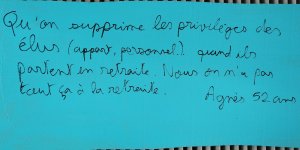 Qu'on supprime les privilèges des
élus (appart, personnel..) quand ils
partent en retraite. Nous on n'a pas
tout ça à la retraite. Agnès 52 ans